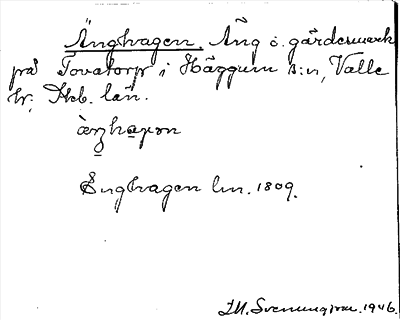 Änghagen. Äng o. gärdesmark
på Tovatorp i Häggum s:n, Valle
hr, Skb. län.
äŋhagən
Enghagen lm. 1809.
I.M. Svenungsson. 1946.